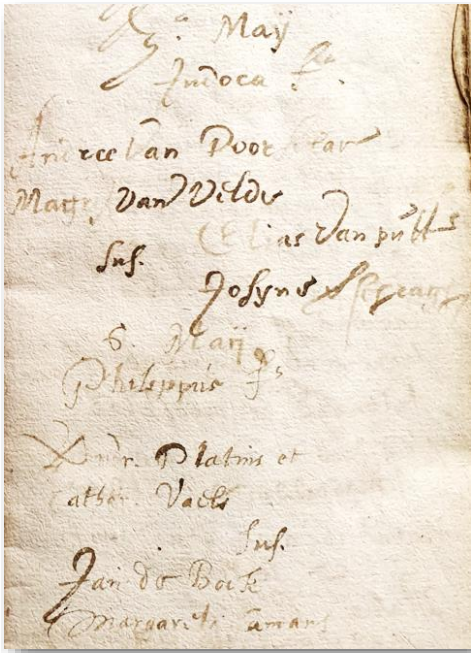 Maij
Judoca f.a
Andree Van Poor
Mary Van Velde
Elias Van putte
sus.
Josyne
6. Maij
Philippus f.s
Platins et
Cathar. Vaels
sus.
Jan de Bock
Margareta amans